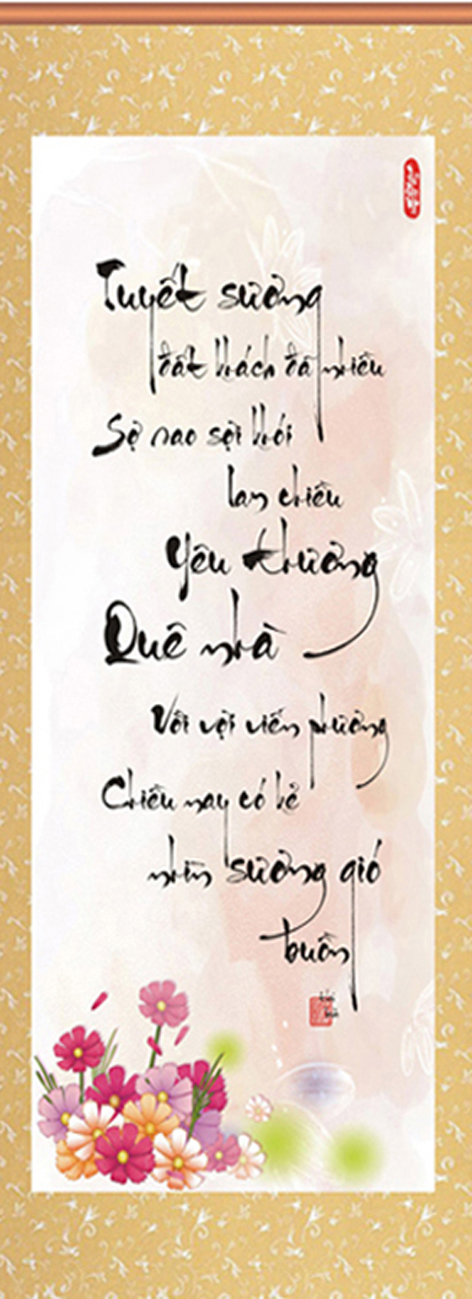 Tuyết sương
đất khách đã nhiều
Sợ sao sợi khói
lam chiều
Yêu thương
Quê nhà
Vời vợi viễn phương
Chiều nay có kẻ
nhìn sương gió
buồn